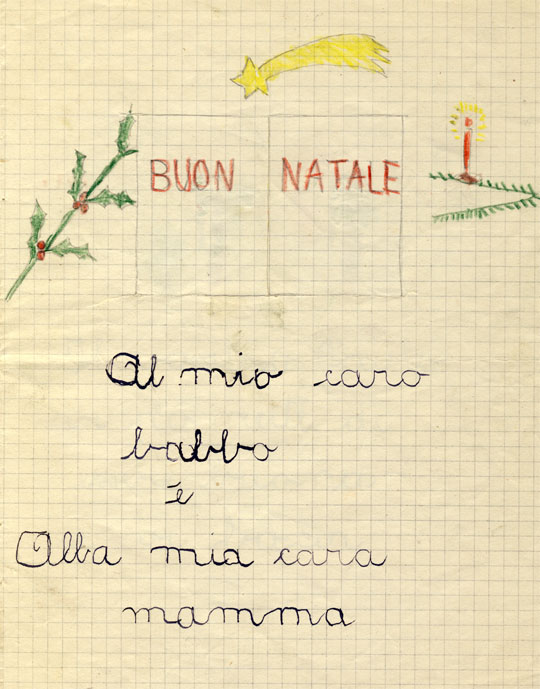 BUON NATALE
Al mio caro
babbo
è
Alba mia cara
mamma